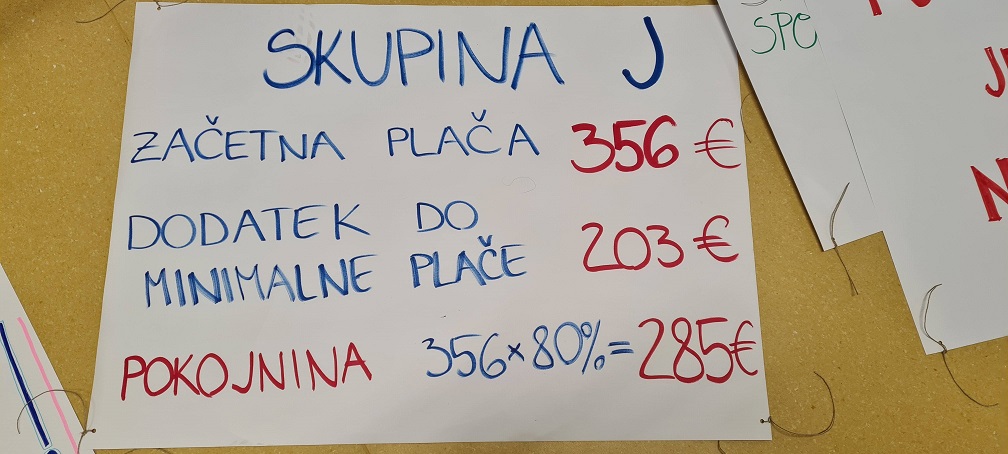 SKUPINA J
ZAČETNA PLAČA 356 €
DODATEK DO
MINIMALNE PLAČE 203 €
POKOJNINA 356×80%=285€
SPC